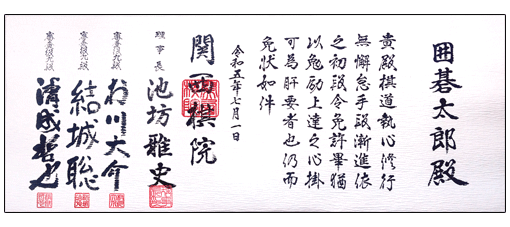 囲碁太郎殿
貴殿棋道執心修行
無懈怠手段漸進依
之初段令免許畢猶
以勉励上達之心掛
可為肝要者也仍而
免状如件
令和五年七月一日
関西棋院
理事長 池坊雅史
審査役九段 結城聡